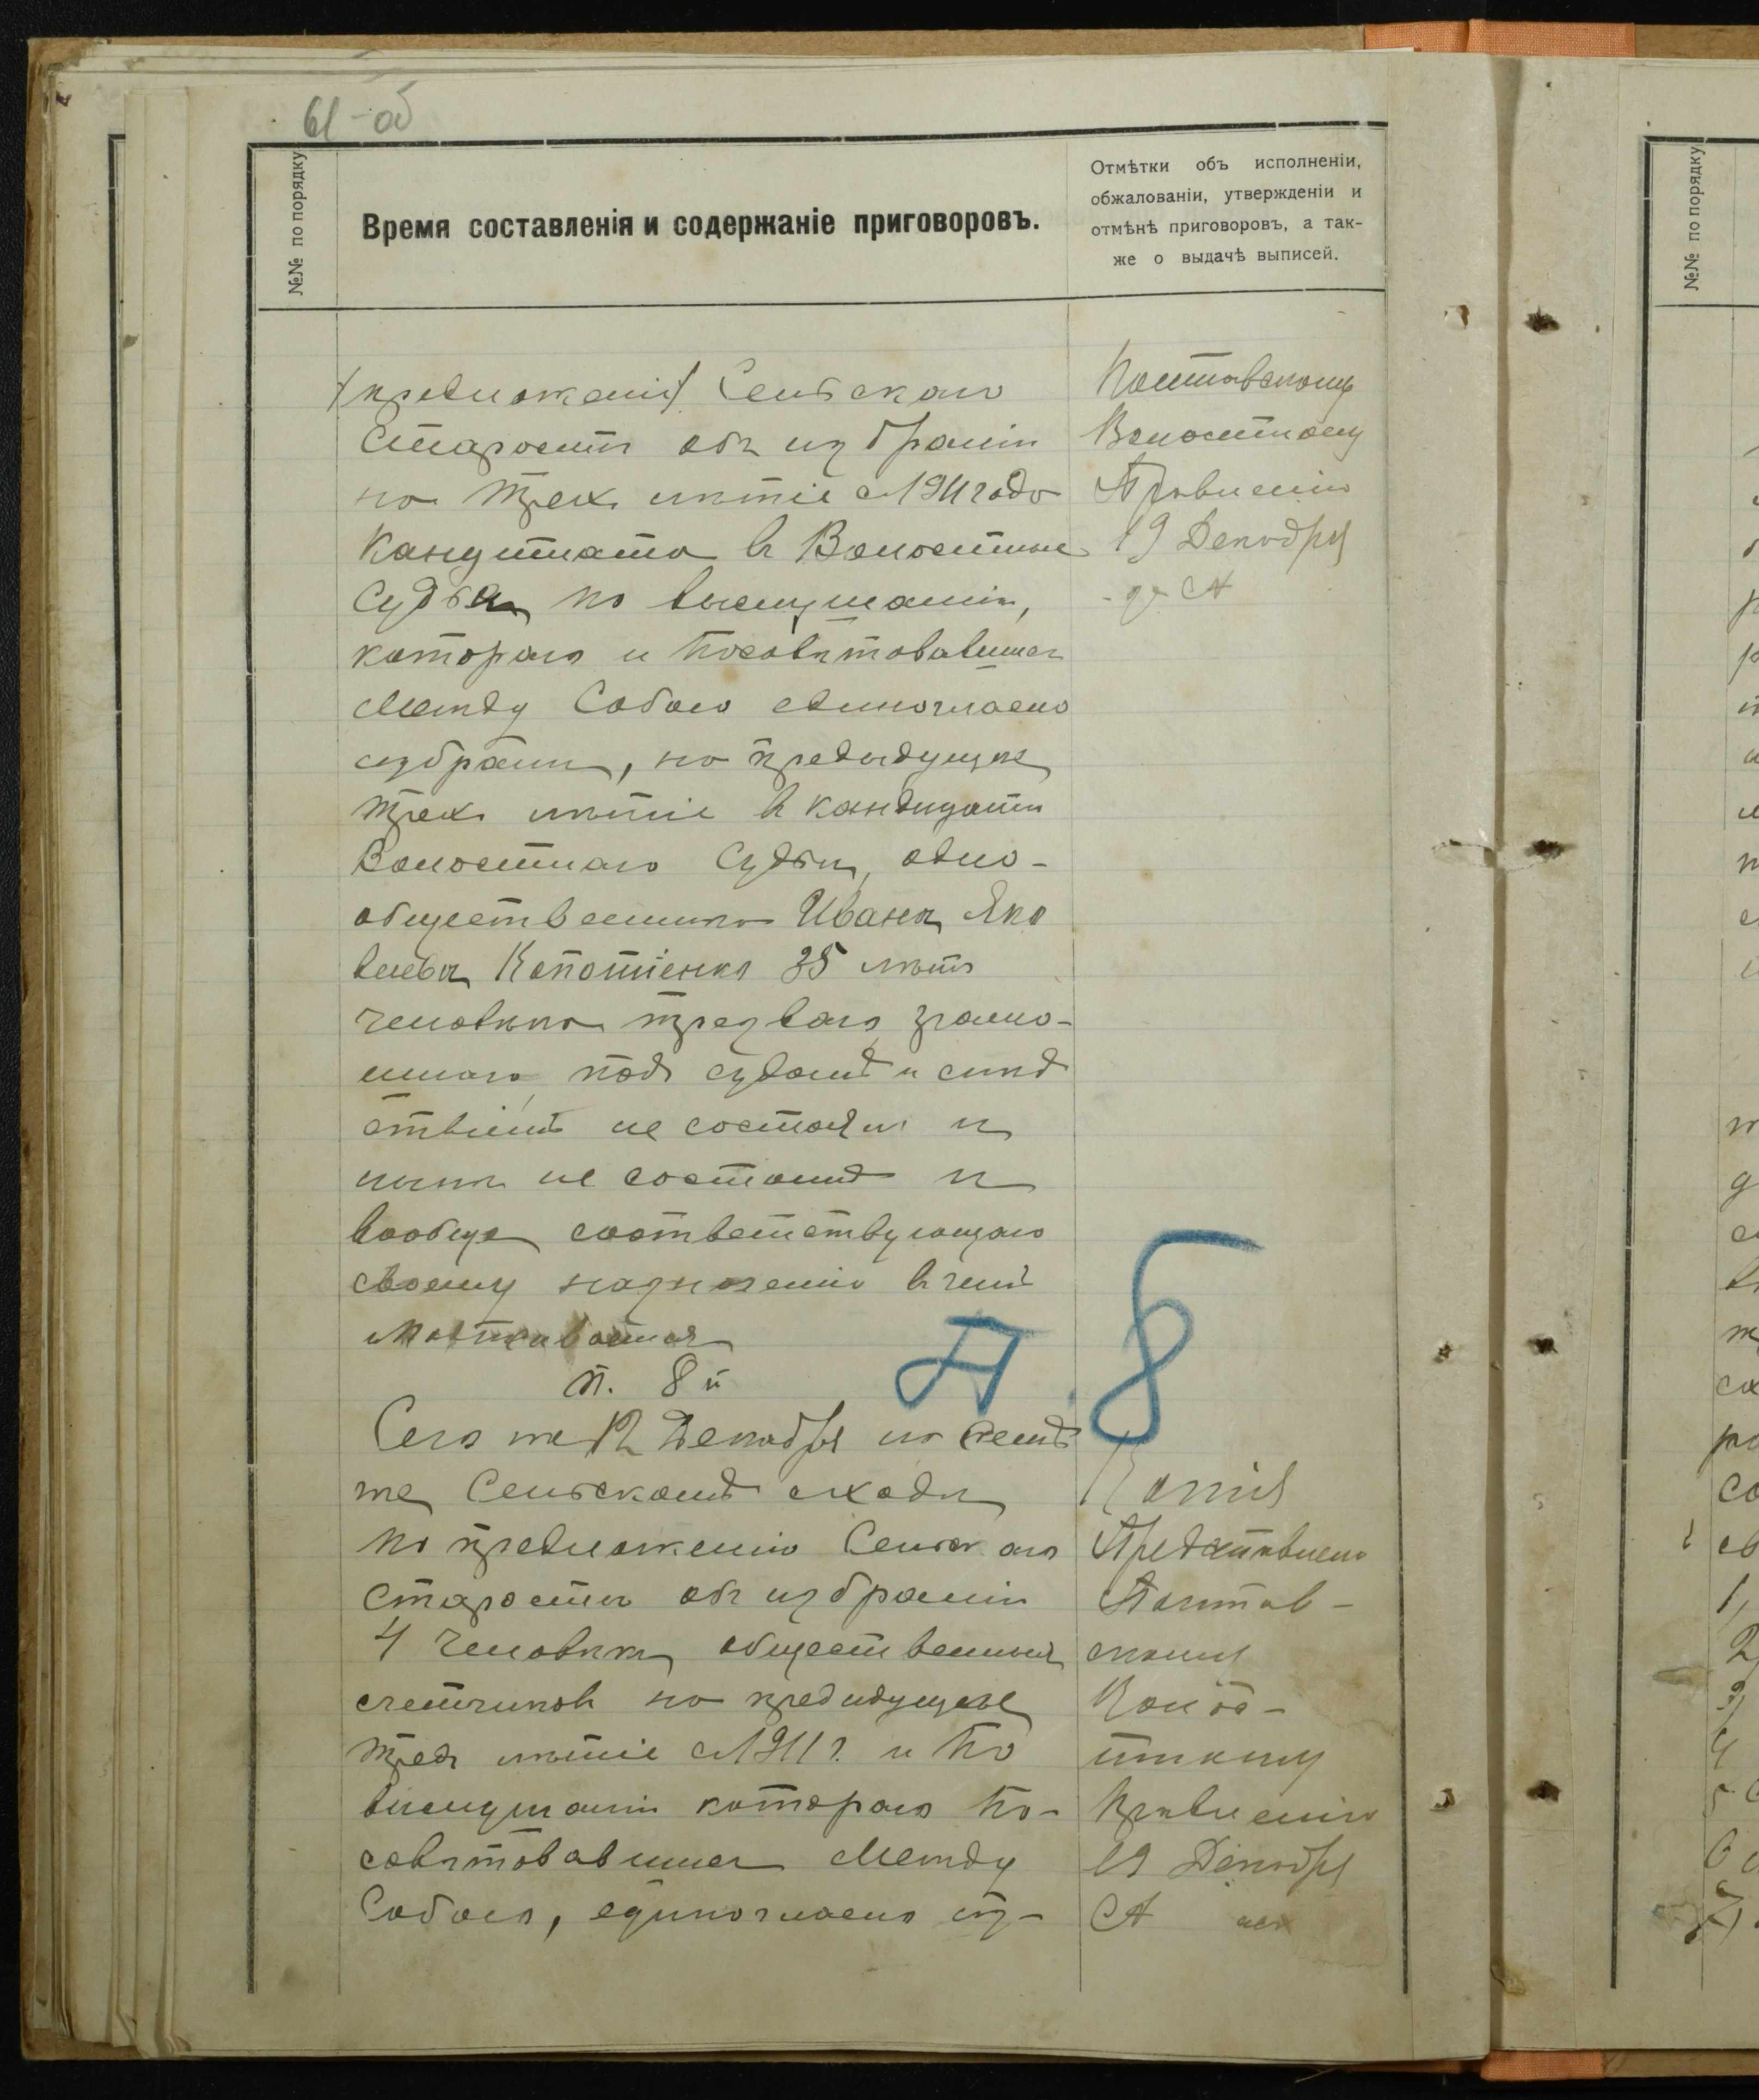 61-об
№№ по порядку
Время составленія и содержаніе приговоровъ.
Отмѣтки объ исполненіи,
обжалованіи, утвержденіи и
отмѣнѣ приговоровъ, а так-
же о выдачѣ выписей.
предложенія Сельскаго
Старосты объ избраніи
на трех лѣтіе с 1911 года
Кандитата в Волостные
Судьи по выслушаніи,
котораго и посовѣтовавшись
Между Собою единогласно
избрали, на предыдущее
трех лѣтіе в кандидаты
Волостнаго Судьи, одно-
общественника Ивана Яко
влева 35 лѣтъ
человѣка трезваго грамо-
тнаго, подъ судомъ и слѣд
ствіемъ не состоялъ и
нынѣ не состоитъ и
вообще соответствующаго
своему назначенію в чемъ
п. 8й
Сего же 12 Декабря на семъ
же Сельскомъ сходѣ
по предложенію Сельскаго
Старосты объ избраніи
4 человѣкъ общественныхъ
счетчиковъ на предидущее
трех лѣтіе с 1911 г. и по
выслушаніи котораго по-
совѣтовавшись Между
Собою, единогласно из-
Волостному
Правленію
19 Декабря
СА
8
Копія
Представлена
скому
Правленію
19 Декабря
СА
№№ по порядку